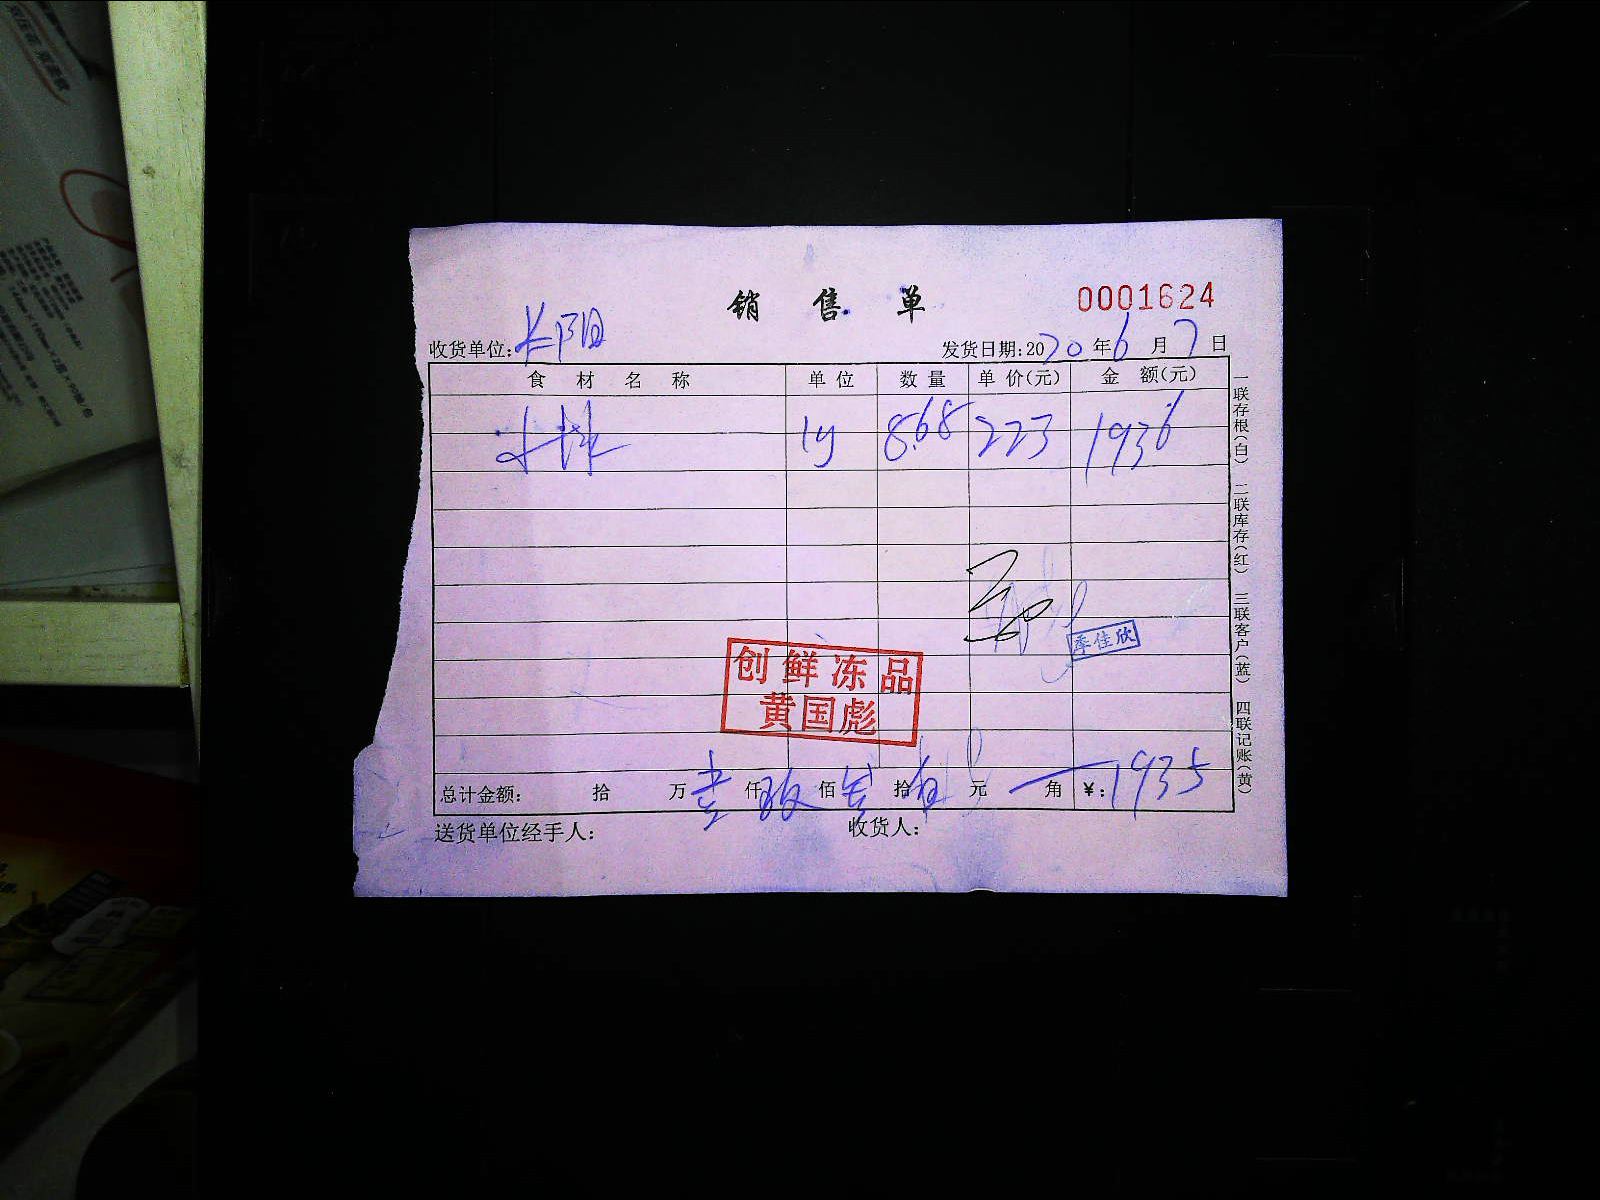 销 售 单
0001624
收货单位:长阳
发货日期:2020年6月7日
食 材 名 称 单 位 数 量 单 价(元) 金 额(元)
8.68 223 1936
季佳欣
创鲜冻品
黄国彪
总计金额: 拾 万 壹 仟 玖 佰 叁 拾 伍 元 角 ¥:1935
送货单位经手人: 收货人:
一联存根(白) 二联库存(红) 三联客户(蓝) 四联记账(黄)